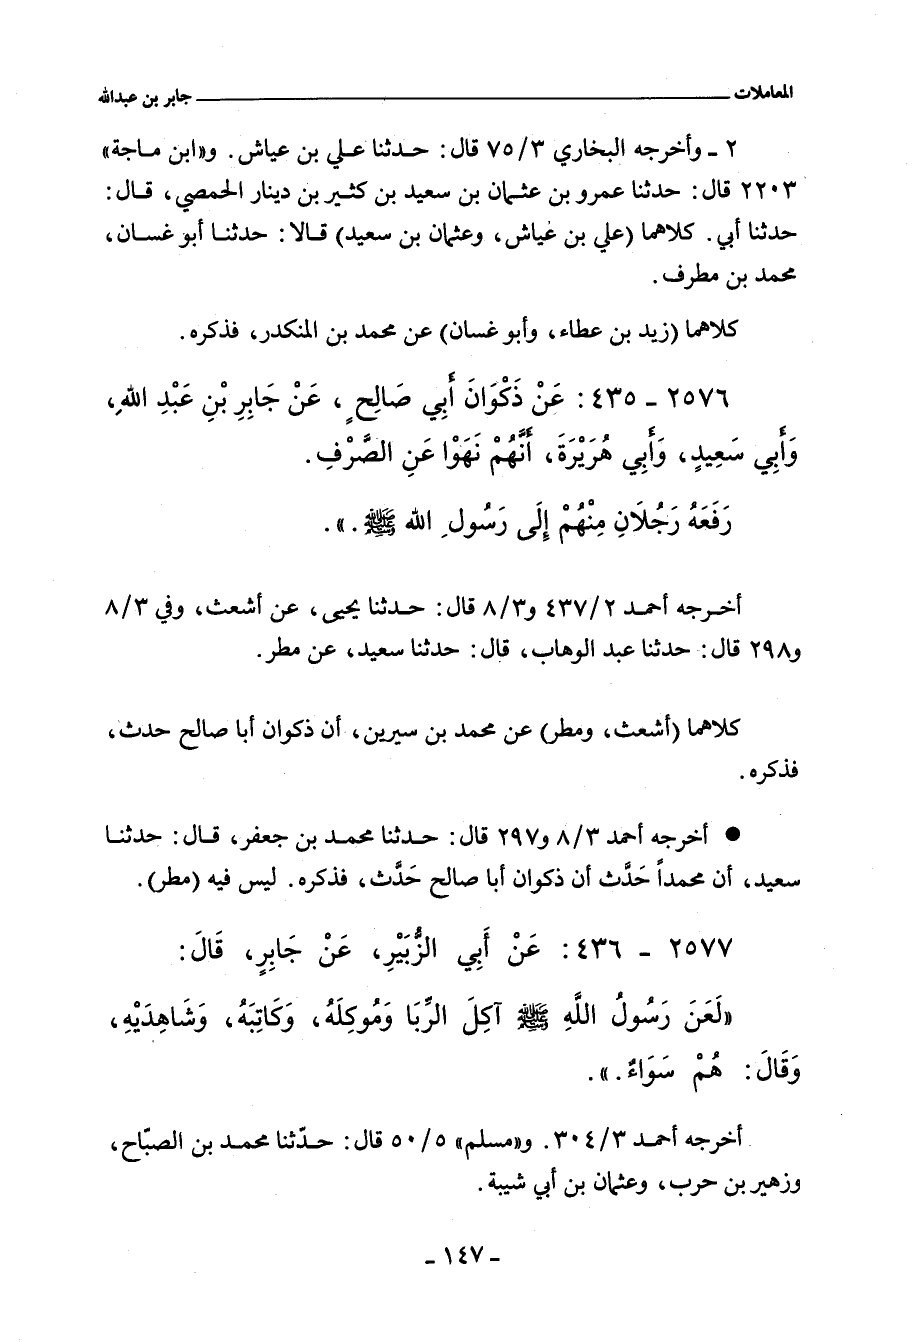 المعاملات ـــــــــــــــــــــ جابر بن عبدالله
٢ ـ وأخرجه البخاري ٧٥/٣ قال: حدثنا علي بن عياش. و«ابن ماجة»
٢٢٠٣ قال: حدثنا عمرو بن عثمان بن سعيد بن كثير بن دينار الحمصي، قال:
حدثنا أبي. كلاهما (علي بن عياش، وعثمان بن سعيد) قالا: حدثنا أبو غسان،
محمد بن مطرف.
كلاهما (زيد بن عطاء، وأبو غسان) عن محمد بن المنكدر، فذكره.
٢٥٧٦ ـ ٤٣٥: عَنْ ذَكْوَانَ أَبِي صَالِحٍ، عَنْ جَابِرِ بْنِ عَبْدِ اللهِ،
وَأَبِي سَعِيدٍ، وَأَبِي هُرَيْرَةَ، أَنَّهُمْ نَهَوْا عَنِ الصَّرْفِ.
رَفَعَهُ رَجُلَانِ مِنْهُمْ إِلَى رَسُولِ الله ﷺ.».
أخرجه أحمد ٤٣٧/٢ و٨/٣ قال: حدثنا يحيى، عن أشعث، وفي ٨/٣
و٢٩٨ قال: حدثنا عبد الوهاب، قال: حدثنا سعيد، عن مطر.
كلاهما (أشعث، ومطر) عن محمد بن سيرين، أن ذكوان أبا صالح حدث،
فذكره.
● أخرجه أحمد ٨/٣ و٢٩٧ قال: حدثنا محمد بن جعفر، قال: حدثنا
سعيد، أن محمداً حَدَّث أن ذكوان أبا صالح حَدَّث، فذكره. ليس فيه (مطر).
٢٥٧٧ ـ ٤٣٦: عَنْ أَبِي الزُّبَيْرِ، عَنْ جَابِرٍ، قَالَ:
«لَعَنَ رَسُولُ اللَّهِ ﷺ آكِلَ الرِّبَا وَمُوكِلَهُ، وَكَاتِبَهُ، وَشَاهِدَيْهِ،
وَقَالَ: هُمْ سَوَاءٌ.».
أخرجه أحمد ٣٠٤/٣. و«مسلم» ٥٠/٥ قال: حدّثنا محمد بن الصبّاح،
وزهير بن حرب، وعثمان بن أبي شيبة.
ـ ١٤٧ ـ